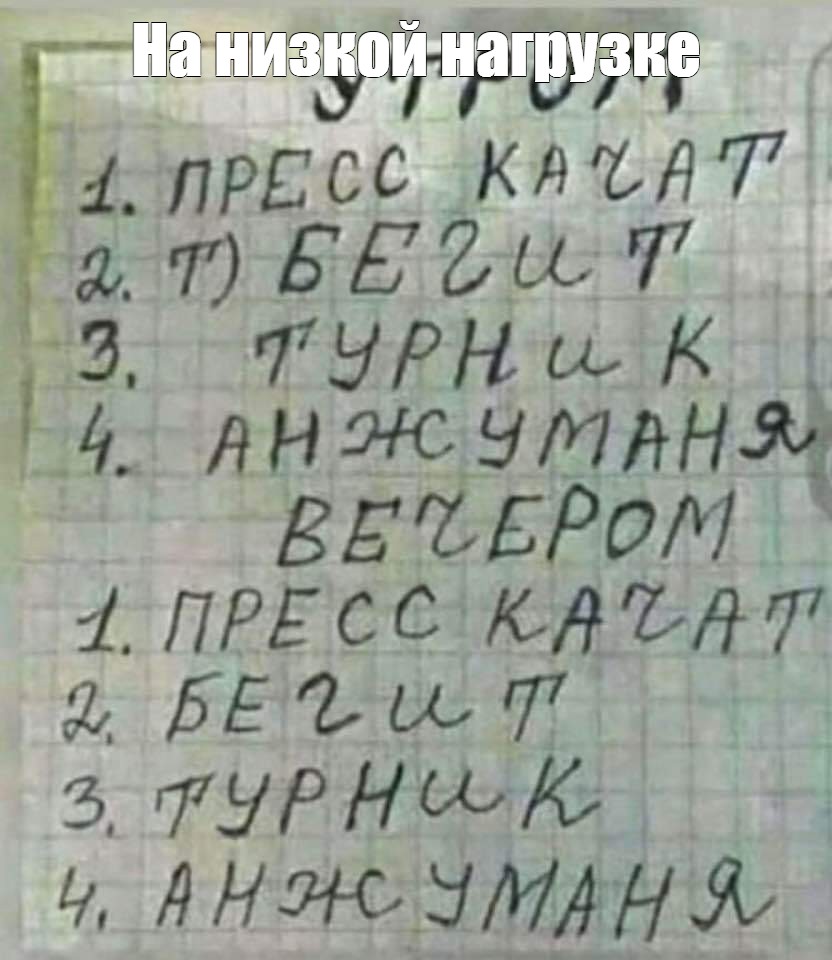 На низкой нагрузке
УТРОМ
1. ПРЕСС КАЧАТ
2. Т) БЕГИТ
3. ТУРНИК
4. АНЖУМАНЯ
ВЕЧЕРОМ
1. ПРЕСС КАЧАТ
2. БЕГИТ
3. ТУРНИК
4. АНЖУМАНЯ